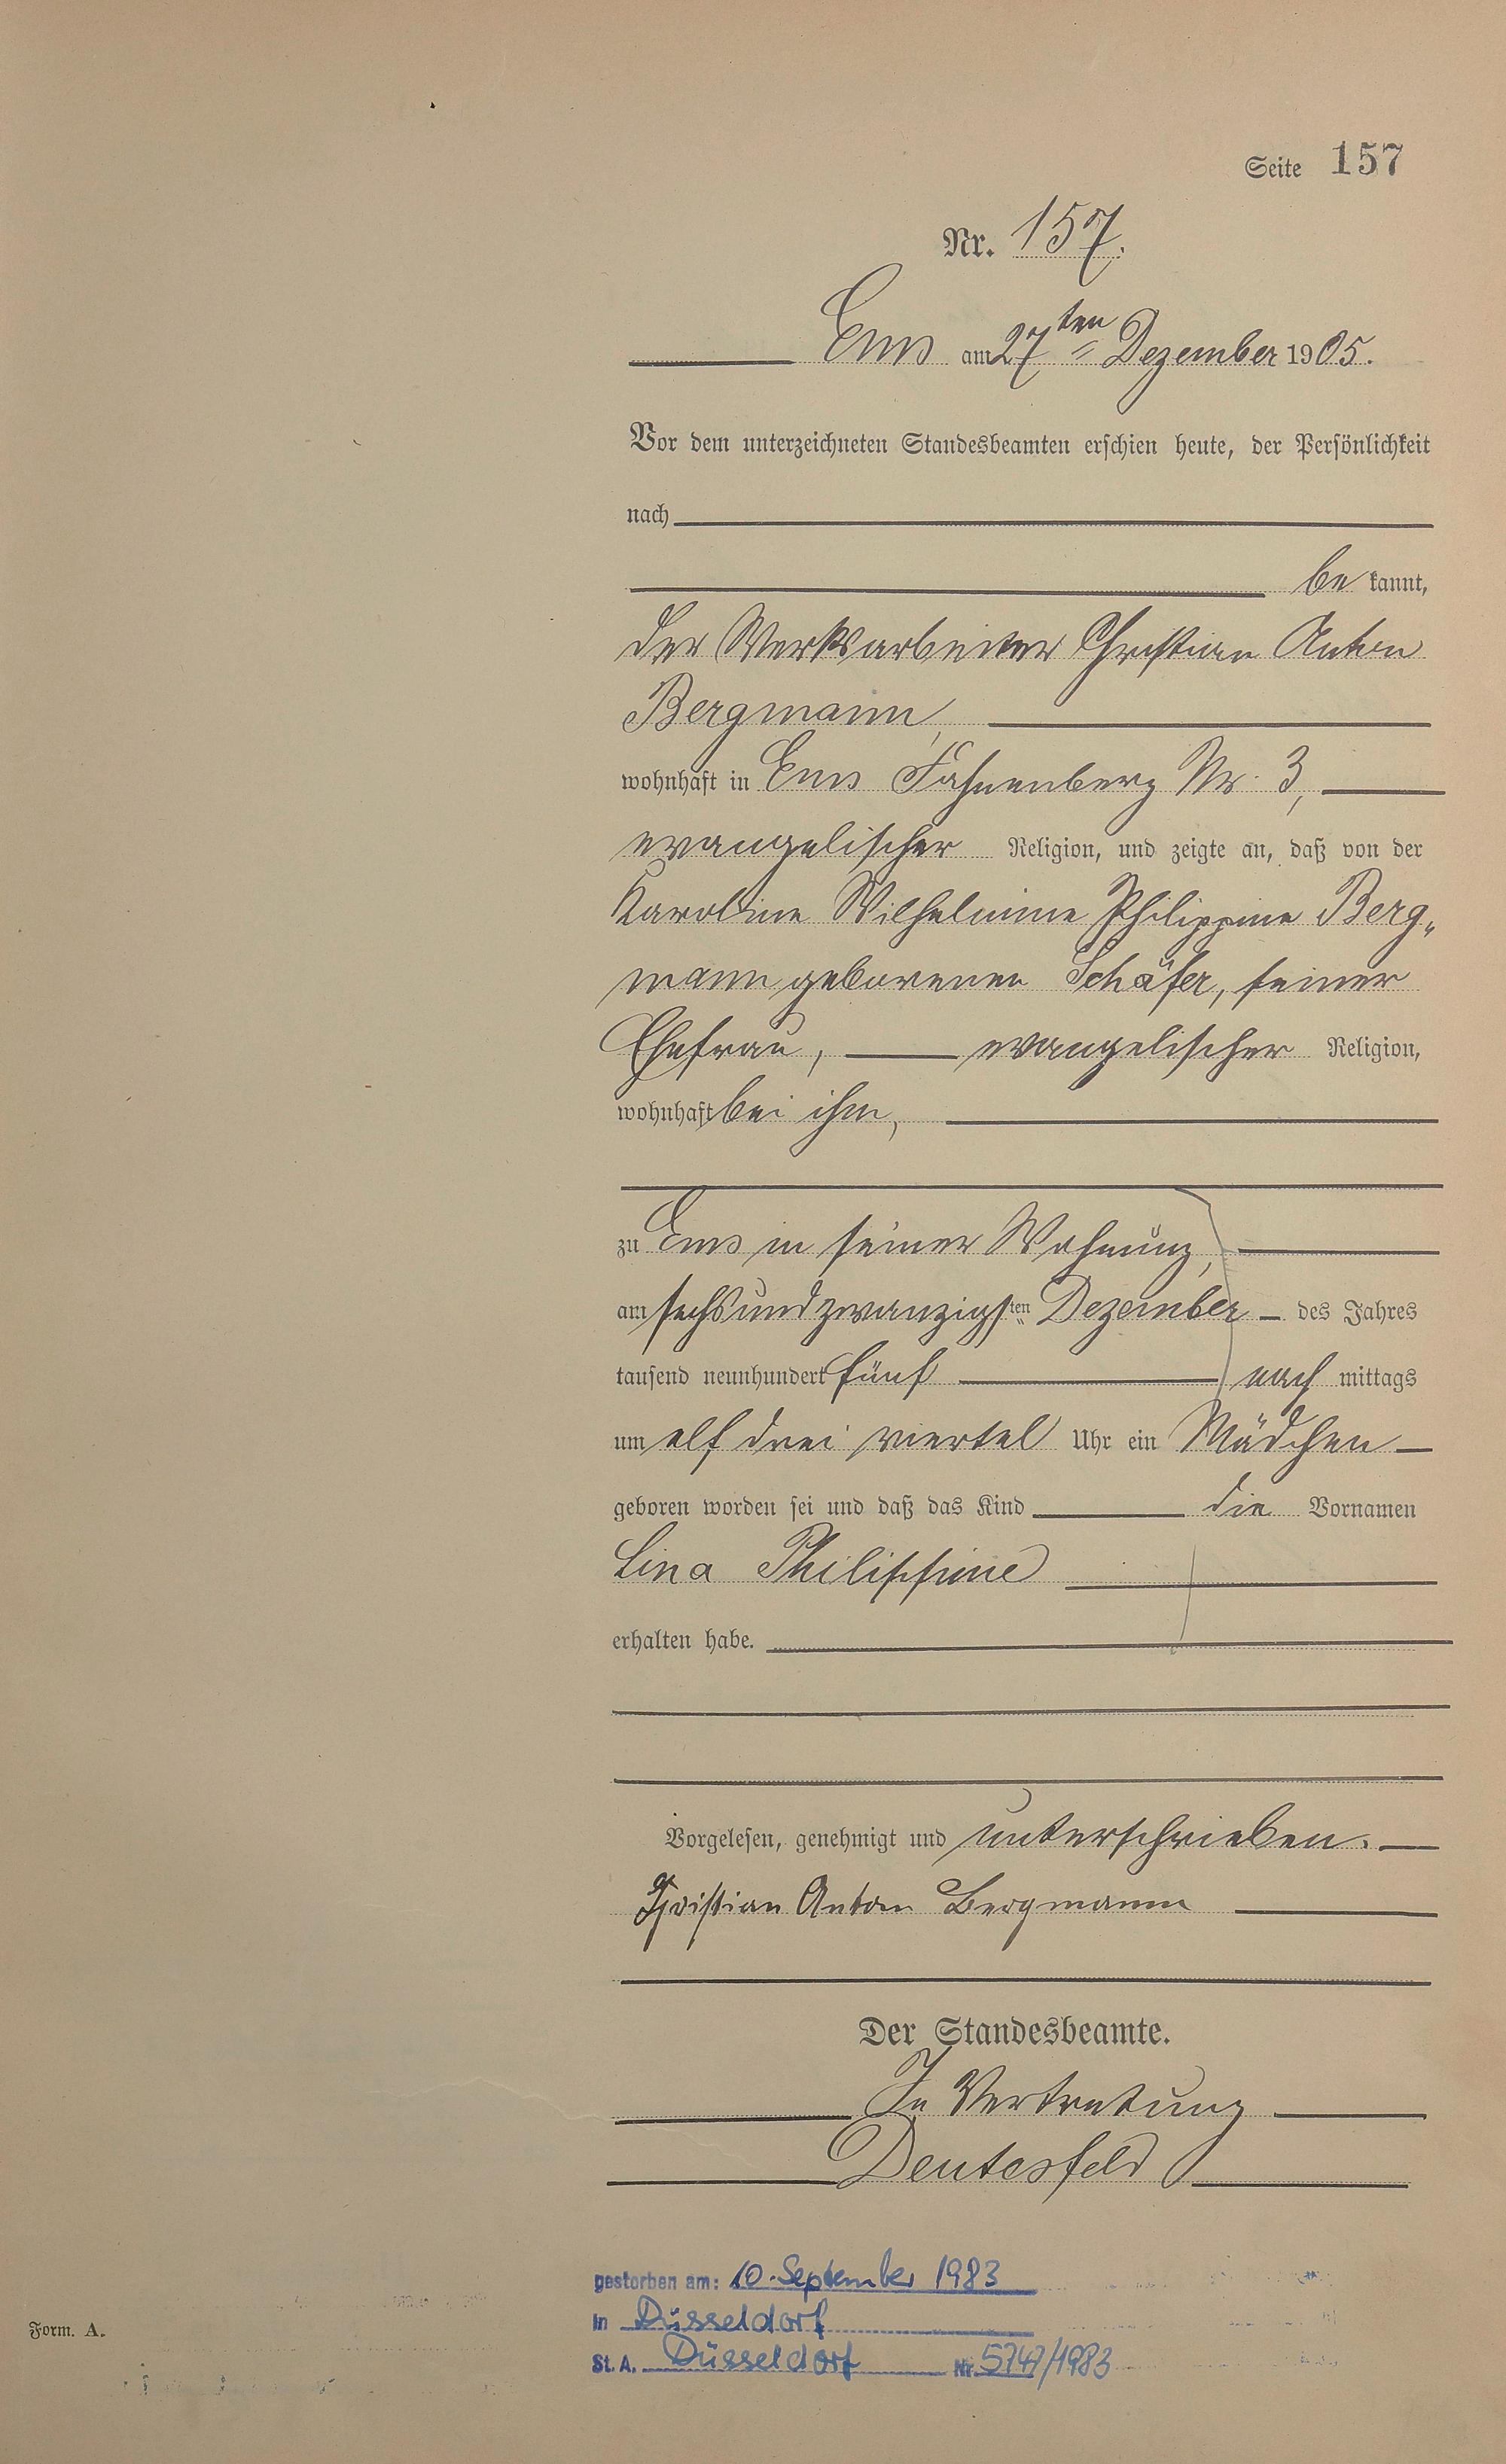 Seite 157
Nr. 157.
Ems am 27ten Dezember 1905.
Vor dem unterzeichneten Standesbeamten erschien heute, der Persönlichkeit
nach
be kannt,
der Werksarbeiter Christian Anton
Bergmann,
wohnhaft in Ems Fahnenberg Nr. 3,
evangelischer Religion, und zeigte an, daß von der
Karoline Wilhelmine Philippine Berg„
mann geborenen Schäfer, seiner
Ehefrau, evangelischer Religion,
wohnhaft bei ihm,
zu Ems in seiner Wohnung,
am sechsundzwanzigsten Dezember des Jahres
tausend neunhundert fünf nach mittags
um elf drei viertel Uhr ein Mädchen
geboren worden sei und daß das Kind die Vornamen
Lina Philippine
erhalten habe.
Vorgelesen, genehmigt und unterschrieben.
Christian Anton Bergmann
Der Standesbeamte.
In Vertretung
Deutesfeld
gestorben am: 10. September 1983
in Düsseldorf
Form. A.
St. A. Düsseldorf Nr. 5747/1983